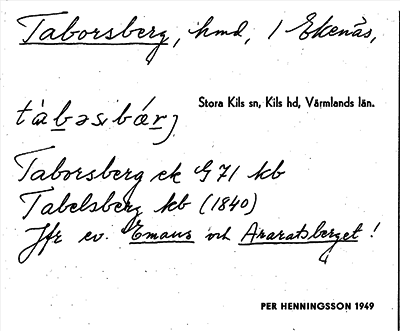 Taborsberg, hmd, 1 Ekenäs,
Stora Kils sn, Kils hd, Värmlands län.
Taborsberg ek G 71 kb
Tabelsberg kb (1840)
Jfr ev. Emaus och Araratsberget !
PER HENNINGSSON 1949